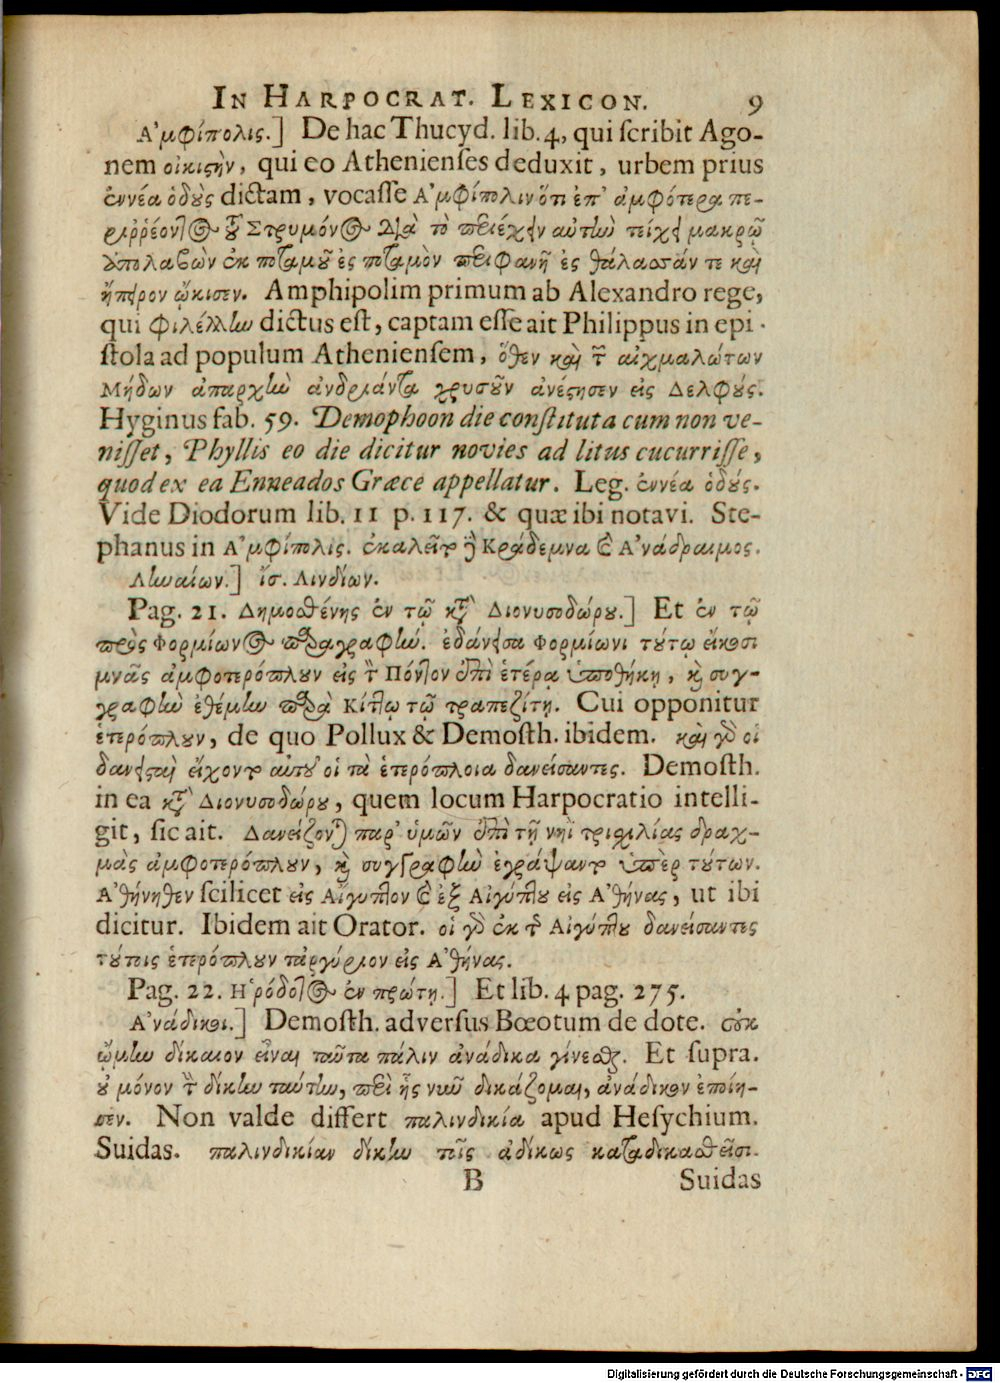 In Harpocrat. Lexicon. 9
Ἀμφίπολις.] De hac Thucyd. lib. 4, qui ſcribit Ago-
nem οἰκιςὴν, qui eo Athenienſes deduxit, urbem prius
ἐννέα ὁδοὺς dictam, vocaſſe Ἀμφίπολιν ὅτι ἐπ' ἀμφότερα πε-
ριῤῥέοντος τοῦ Στρυμόνος διὰ τὸ περιέχειν αὐτὴν τείχει μακρῷ
ὑπολαβὼν ἐκ ποταμοῦ ἐς ποταμὸν περιφανῆ ἐς θάλασσάν τε καὶ
ἤπειρον ᾤκισεν. Amphipolim primum ab Alexandro rege,
qui Φιλέλλην dictus eſt, captam eſſe ait Philippus in epi-
ſtola ad populum Athenienſem, ὅθεν καὶ τῶν αἰχμαλώτων
Μήδων ἀπαρχὴν ἀνδριάντα χρυσοῦν ἀνέςησεν εἰς Δελφούς.
Hyginus fab. 59. Demophoon die conſtituta cum non ve-
niſſet, Phyllis eo die dicitur novies ad litus cucurriſſe,
quod ex ea Enneados Græce appellatur. Leg. ἐννέα ὁδούς.
Vide Diodorum lib. 11 p. 117. & quæ ibi notavi. Ste-
phanus in Ἀμφίπολις. ἐκαλεῖτο δὲ Κράδεμνα καὶ Ἀνάδραιμος.
Λιναίων.] ἴσ. Λινδίων.
Pag. 21. Δημοσθένης ἐν τῷ κατὰ Διονυσοδώρου.] Et ἐν τῷ
πρὸς Φορμίωνος παραγραφήν. ἐδάνεισα Φορμίωνι τούτῳ εἴκοσι
μνᾶς ἀμφοτερόπλουν εἰς τὸν Πόντον ἐπὶ ἑτέρᾳ ὑποθήκῃ, καὶ συγ-
γραφὴν ἐθέμην παρὰ Κίττῳ τῷ τραπεζίτῃ. Cui opponitur
ἑτερόπλουν, de quo Pollux & Demoſth. ibidem. καὶ γὰρ οἱ
δανεισταὶ εἴχοντο αὐτοῦ οἱ τὰ ἑτερόπλοια δανείσαντες. Demoſth.
in ea κατὰ Διονυσοδώρου, quem locum Harpocratio intelli-
git, ſic ait. Δανείζονται παρ' ὑμῶν ἐπὶ τῇ νηὶ τριχιλίας δραχ-
μὰς ἀμφοτερόπλουν, καὶ συγγραφὴν ἐγράψαντο ὑπὲρ τούτων.
Ἀθήνηθεν ſcilicet εἰς Αἴγυπτον καὶ ἐξ Αἰγύπτου εἰς Ἀθήνας, ut ibi
dicitur. Ibidem ait Orator. οἱ γὰρ ἐκ τῆς Αἰγύπτου δανείσαντες
τούτοις ἑτερόπλουν τἀργύριον εἰς Ἀθήνας.
Pag. 22. Ἡρόδοτος ἐν πρώτῃ.] Et lib. 4 pag. 275.
Ἀνάδικοι.] Demoſth. adverſus Bœotum de dote. οὐκ
ᾤμην δίκαιον εἶναι ταῦτα πάλιν ἀνάδικα γίνεσθαι. Et ſupra.
οὐ μόνον τὴν δίκην ταύτην, περὶ ἧς νῦν δικάζομαι, ἀνάδικον ἐποίη-
σεν. Non valde differt παλινδικία apud Heſychium.
Suidas. παλινδικίαν δίκην τοῖς ἀδίκως καταδικασθεῖσι.
B Suidas
Digitalisierung gefördert durch die Deutsche Forschungsgemeinschaft - DFG